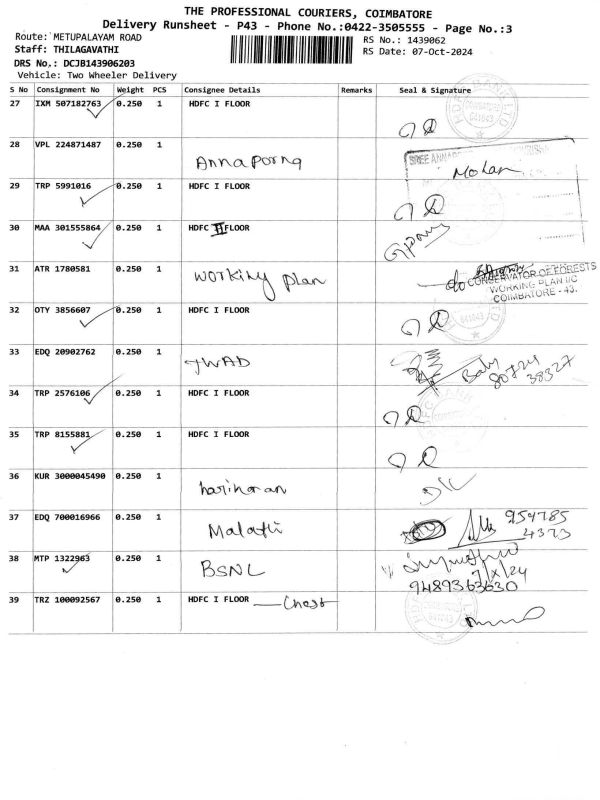 THE PROFESSIONAL COURIERS, COIMBATORE
Delivery Runsheet - P43 - Phone No.:0422-3505555 - Page No.:3
Route: METUPALAYAM ROAD
RS No.: 1439062
Staff: THILAGAVATHI
RS Date: 07-Oct-2024
DRS No.: DCJB143906203
Vehicle: Two Wheeler Delivery
S No Consignment No Weight PCS Consignee Details Remarks Seal & Signature
27 IXM 507182763 0.250 1 HDFC I FLOOR
28 VPL 224871487 0.250 1 Annaporna Mohan
29 TRP 5991016 0.250 1 HDFC I FLOOR
30 MAA 301555864 0.250 1 HDFC II FLOOR
31 ATR 1780581 0.250 1 working plan
CONSERVATOR OF FORESTS
WORKING PLAN
COIMBATORE - 43.
32 OTY 3856607 0.250 1 HDFC I FLOOR
33 EDQ 20902762 0.250 1 TWAD Baby 80724 38327
34 TRP 2576106 0.250 1 HDFC I FLOOR
35 TRP 8155881 0.250 1 HDFC I FLOOR
36 KUR 3000045490 0.250 1 hariharan
37 EDQ 700016966 0.250 1 Malathi 954785 4373
38 MTP 1322963 0.250 1 BSNL
7/X/24
9489363630
39 TRZ 100092567 0.250 1 HDFC I FLOOR — Chest